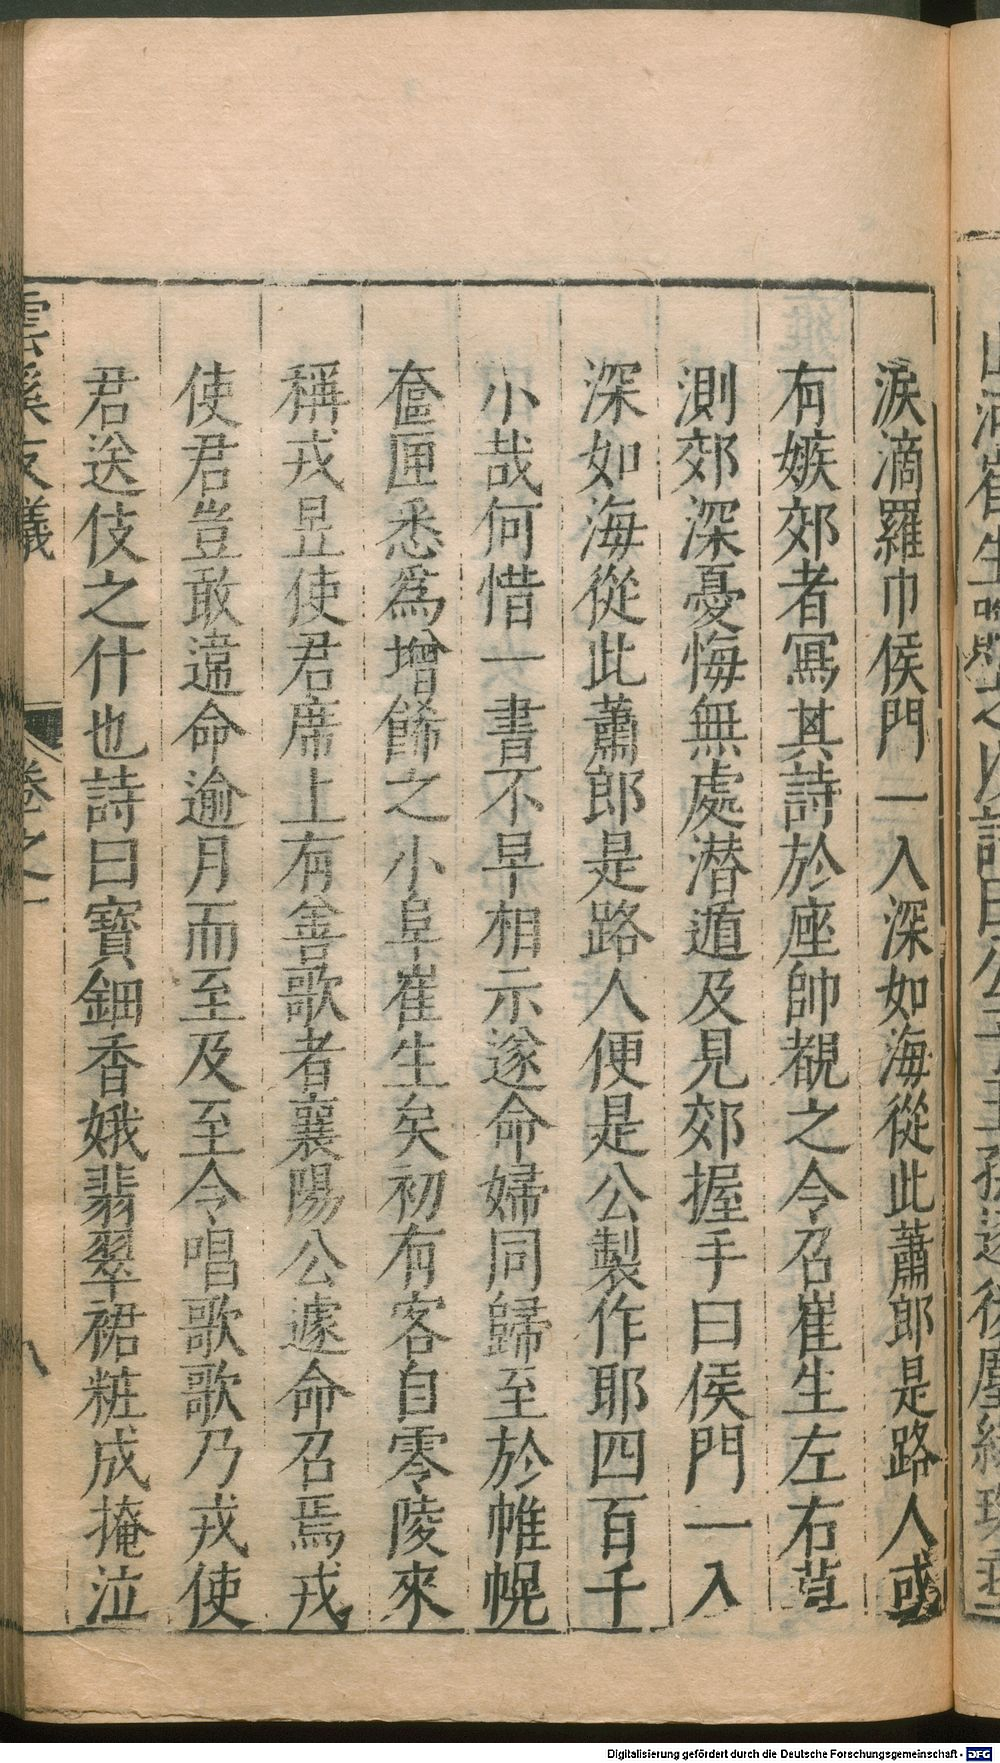 淚滴羅巾侯門一入深如海從此蕭郎是路人或
有嫉郊者寫其詩於座帥覩之令召崔生左右莫
測郊深憂悔無處潜遁及見郊握手曰侯門一入
深如海從此蕭郎是路人便是公製作耶四百千
小哉何惜一書不早相示遂命婦同歸至於帷幌
奩匣悉為增餙之小阜崔生矣初有客自零陵來
稱戎昱使君席上有善歌者襄陽公遽命召焉戎
使君豈敢違命逾月而至及至令唱歌歌乃戎使
君送伎之什也詩曰寶鈿香娥翡翠裙粧成掩泣
雲溪友議 卷之一 八
Digitalisierung gefördert durch die Deutsche Forschungsgemeinschaft - DFG